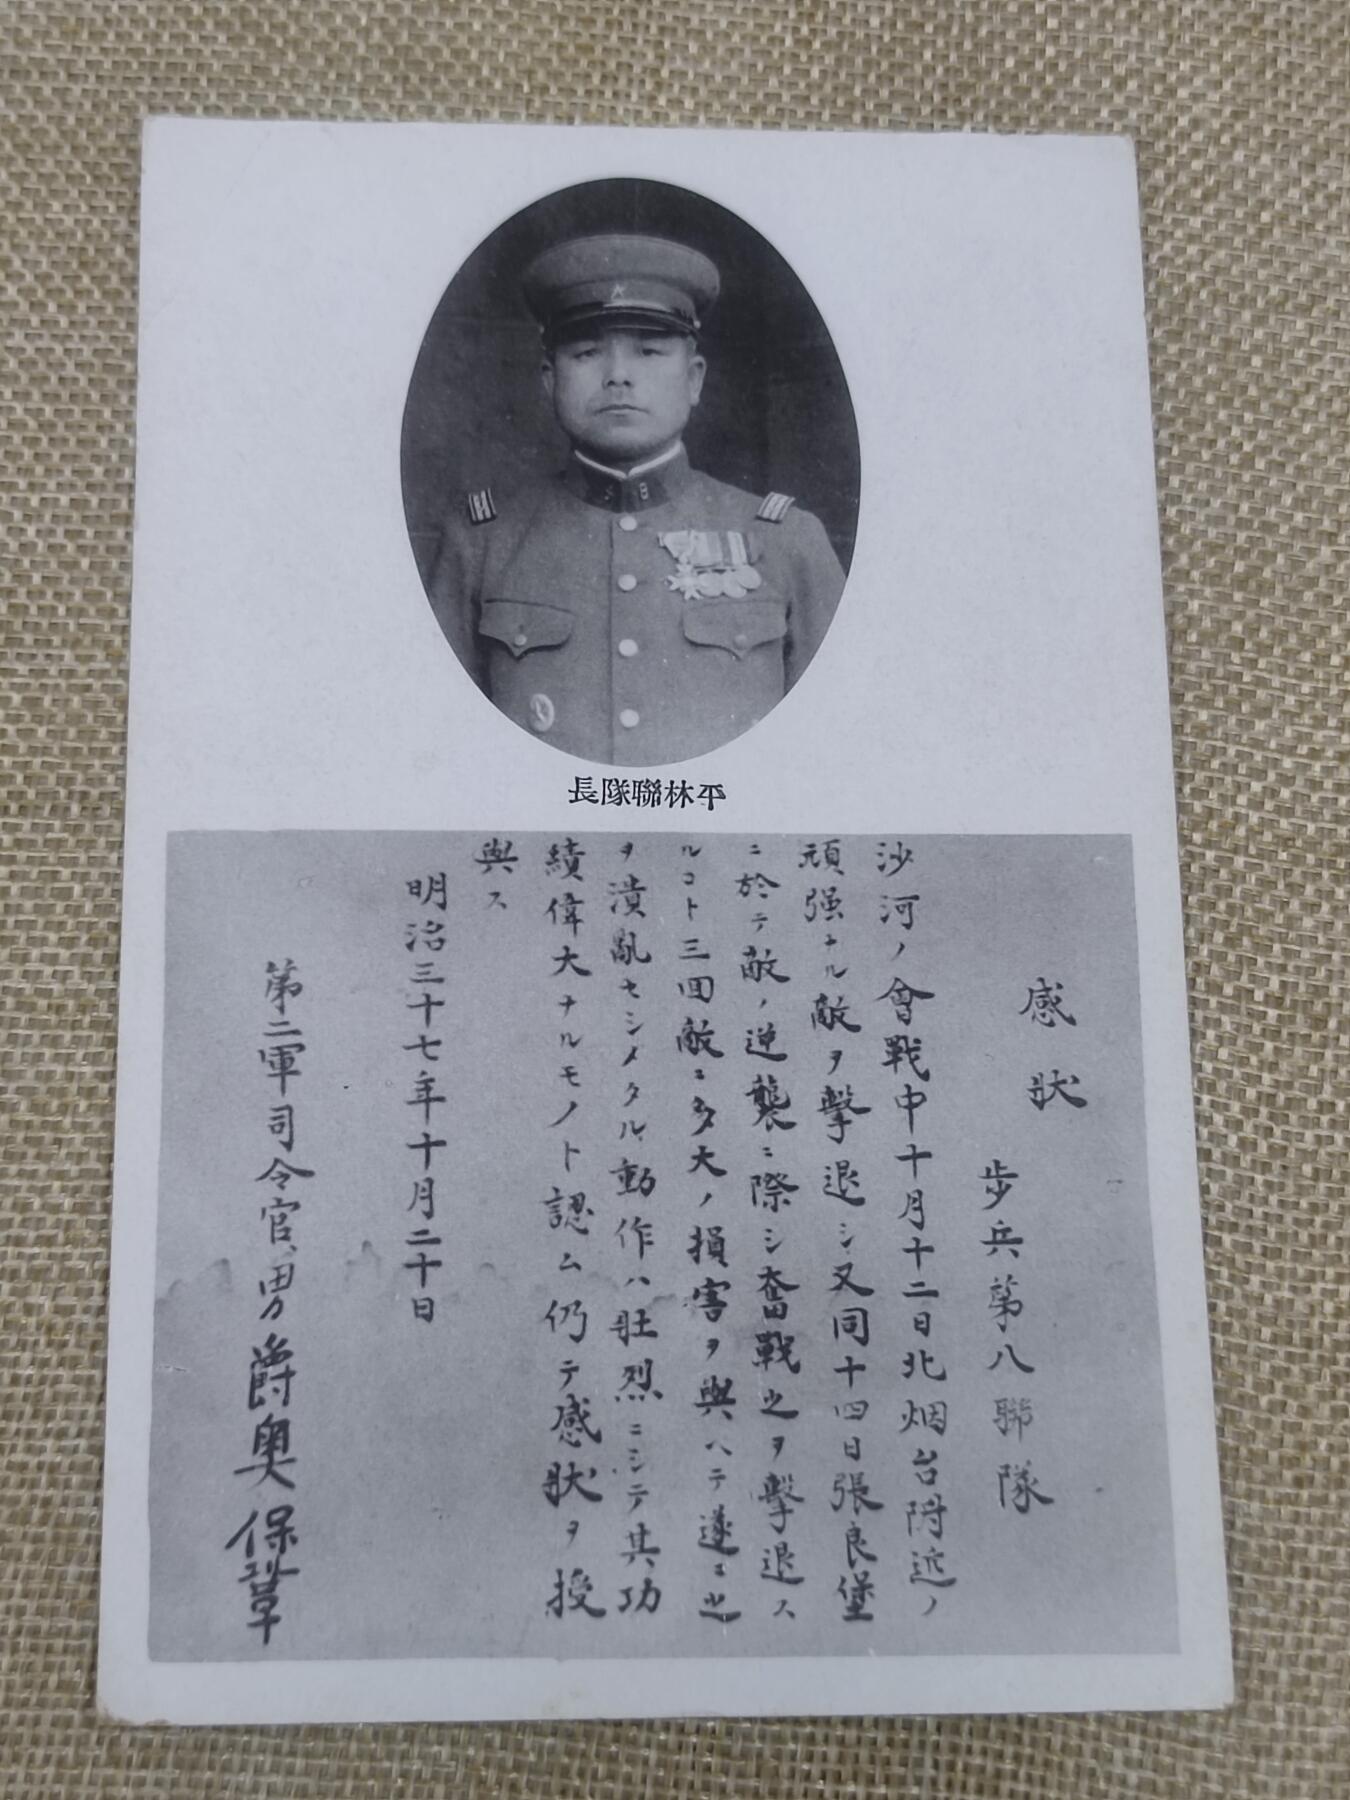 長隊聯林平
感狀
步兵第八聯隊
沙河ノ會戰中十月十二日北烟台附近ノ
頑强ナル敵ヲ擊退シ又同十四日張良堡
ニ於テ敵ノ逆襲ニ際シ奮戰之ヲ擊退ス
ルコト三回敵ニ多大ノ損害ヲ與ヘテ遂ニ之
ヲ潰亂セシメタル動作ハ壯烈ニシテ其功
績偉大ナルモノト認ム仍テ感狀ヲ授
與ス
明治三十七年十月二十日
第二軍司令官男爵奧保鞏